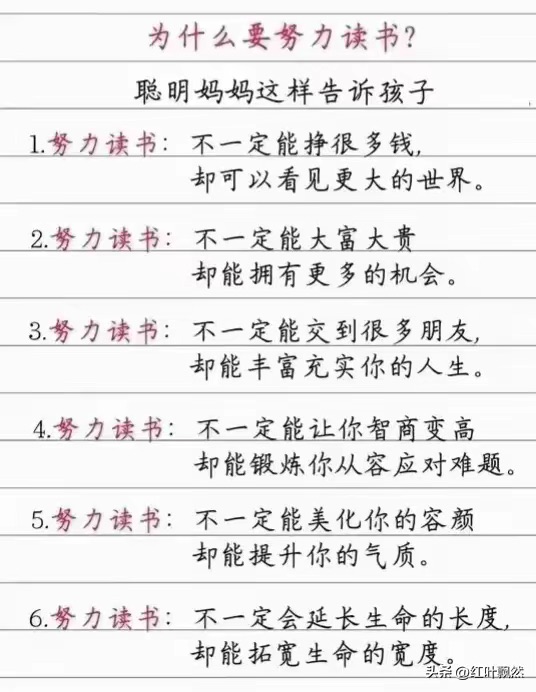 为什么要努力读书?
聪明妈妈这样告诉孩子
1.努力读书: 不一定能挣很多钱,
却可以看见更大的世界。
2.努力读书: 不一定能大富大贵
却能拥有更多的机会。
3.努力读书: 不一定能交到很多朋友,
却能丰富充实你的人生。
4.努力读书: 不一定能让你智商变高
却能锻炼你从容应对难题。
5.努力读书: 不一定能美化你的容颜
却能提升你的气质。
6.努力读书: 不一定会延长生命的长度,
却能拓宽生命的宽度。
头条 @红叶飘然